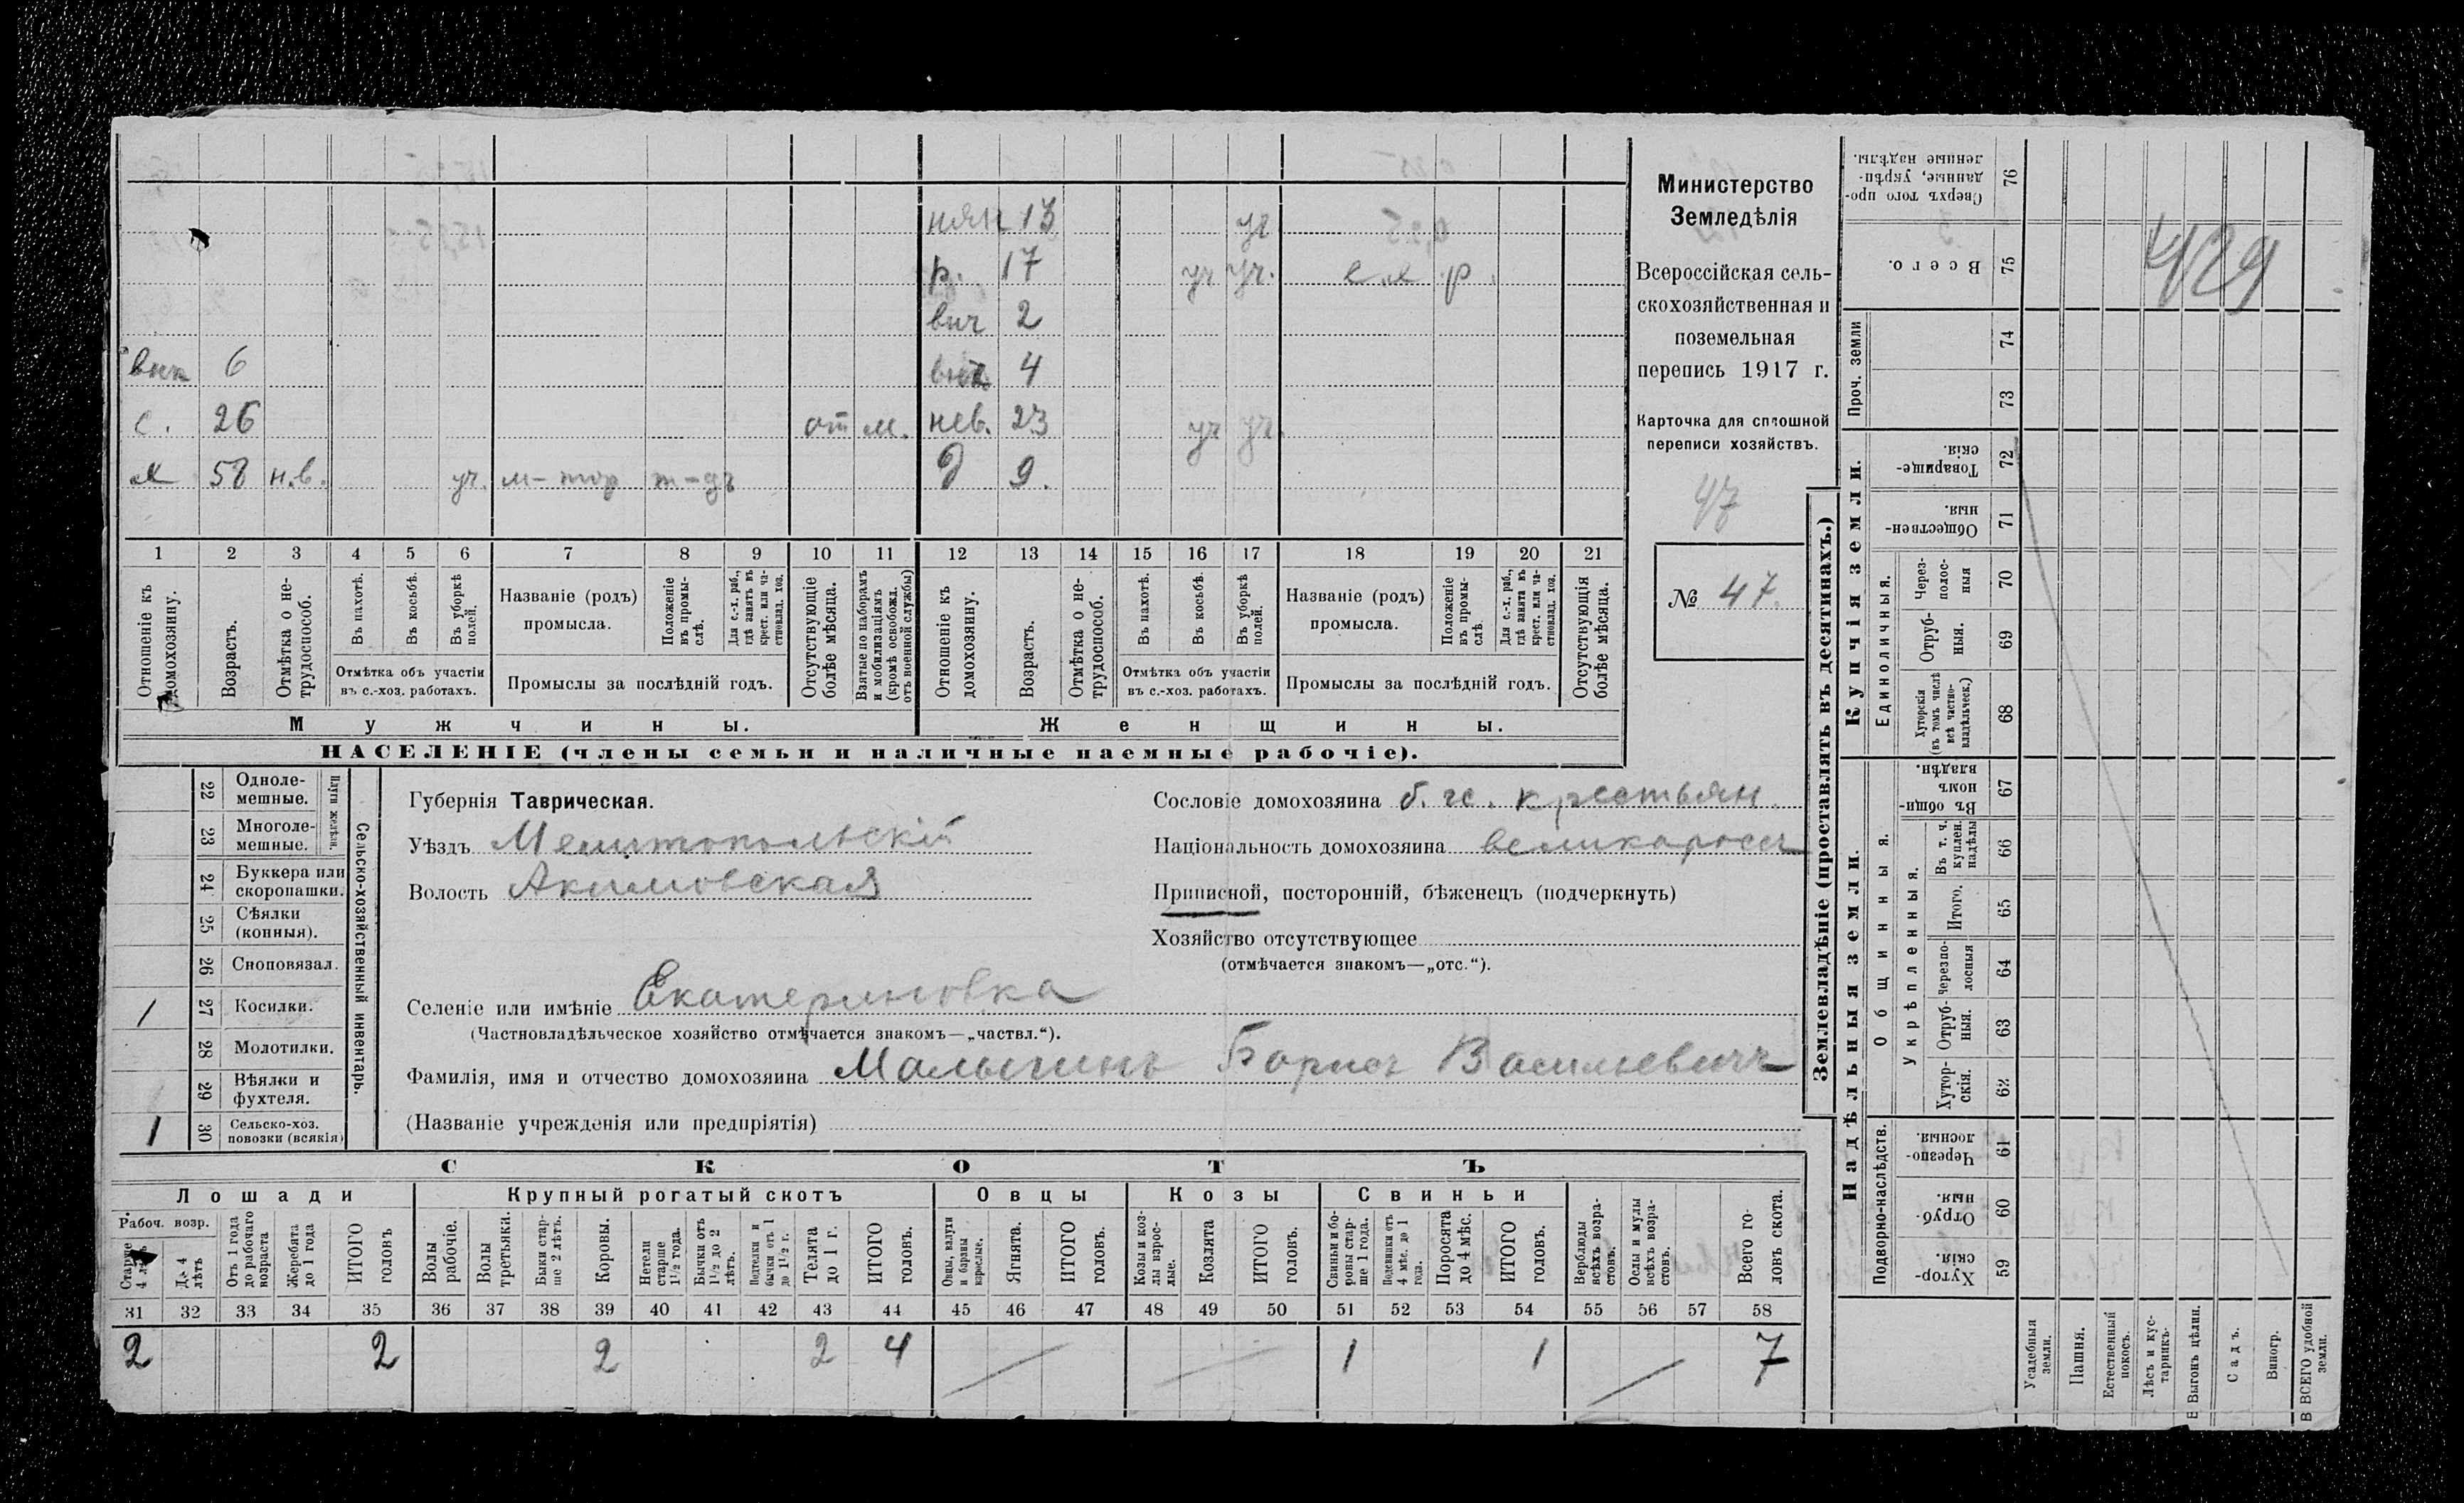 нян 13 уг
р. 17 уч уч. с.х р.
вич 2
внк 6 4
с. 26 от м. нев. 23 уч уч.
х 58 н.в. уч. м-тор т-дъ д 9.
1 2 3 4 5 6 7 8 9 10 11 12 13 14 15 16 17 18 19 20 21
Отношеніе къ домохозяину.
Возрастъ.
Отмѣтка о не-трудоспособ.
Въ пахотѣ.
Въ косьбѣ.
Въ уборкѣ полей.
Отмѣтка объ участіи
въ с.-хоз. работахъ.
Названіе (родъ)
промысла.
Положеніе въ промы-слѣ.
Для с.-х. раб., гдѣ занятъ въ крест. или ча-стновлад. хоз.
Промыслы за послѣдній годъ.
Отсутствующіе болѣе мѣсяца.
Взятые по наборамъ и мобилизаціямъ (кромѣ освобожд. отъ военной службы)
Отношеніе къ домохозяину.
Возрастъ.
Отмѣтка о не-трудоспособ.
Въ пахотѣ.
Въ косьбѣ.
Въ уборкѣ полей.
Отмѣтка объ участіи
въ с.-хоз. работахъ.
Названіе (родъ)
промысла.
Положеніе въ промы-слѣ.
Для с.-х. раб., гдѣ занята въ крест. или ча-стновлад. хоз.
Промыслы за послѣдній годъ.
Отсутствующія болѣе мѣсяца.
Мужчины.
Женщины.
НАСЕЛЕНІЕ (члены семьи и наличные наемные рабочіе).
Министерство
Земледѣлія
Всероссійская сель-
скохозяйственная и
поземельная
перепись 1917 г.
Карточка для сплошной
переписи хозяйствъ.
47
№ 47.
22 Одноле-мешные.
23 Многоле-мешные.
Плуги желѣзн.
24 Буккера или скоропашки.
25 Сѣялки (конныя).
26 Сноповязал.
1 27 Косилки.
28 Молотилки.
29 Вѣялки и фухтеля.
1 30 Сельско-хоз. повозки (всякія)
Сельско-хозяйственный инвентарь.
Губернія Таврическая.
Уѣздъ Мелитопольскій
Волость Акимовская
Селеніе или имѣніе Екатериновка
(Частновладѣльческое хозяйство отмѣчается знакомъ—„частвл.“).
Фамилія, имя и отчество домохозяина Малыгинъ Борисъ Васильевичъ
(Названіе учрежденія или предпріятія)
Сословіе домохозяина крестьян.
Національность домохозяина великороссъ
Приписной, посторонній, бѣженецъ (подчеркнуть)
Хозяйство отсутствующее
(отмѣчается знакомъ—„отс.“).
СКОТЪ
Лошади
Крупный рогатый скотъ
Овцы
Козы
Свиньи
Рабоч. возр.
Старше 4 лѣтъ
До 4 лѣтъ
Отъ 1 года до рабочаго возраста
Жеребята до 1 года
ИТОГО головъ
Волы рабочіе.
Волы третьяки.
Быки стар-ше 2 лѣтъ.
Коровы.
Нетели старше 1½ года.
Бычки отъ 1½ до 2 лѣтъ.
Подтелки и бычки отъ 1 до 1½ г.
Телята до 1 г.
ИТОГО головъ.
Овцы, валухи и бараны взрослые.
Ягнята.
ИТОГО головъ.
Козы и коз-лы взрос-лые.
Козлята
ИТОГО головъ.
Свиньи и бо-ровы стар-ше 1 года.
Подсвинки отъ 4 мѣс. до 1 года.
Поросята до 4 мѣс.
ИТОГО головъ.
Верблюды всѣхъ возра-стовъ.
Ослы и мулы всѣхъ возра-стовъ.
Всего го-ловъ скота.
31 32 33 34 35 36 37 38 39 40 41 42 43 44 45 46 47 48 49 50 51 52 53 54 55 56 57 58
2 2 2 2 4 1 1 7
Землевладѣніе (проставлять въ десятинахъ.)
Сверхъ того про-данные, укрѣп-ленные надѣлы. 76
Всего. 75
429
Проч. земли 74
73
Купчія земли.
Товарище-скія. 72
Обществен-ныя. 71
Единоличныя.
Через-полос-ныя 70
Отруб-ныя. 69
Хуторскія (въ томъ числѣ всѣ частно-владѣльческ.) 68
Надѣльныя земли.
Общинныя.
Въ общи-номъ владѣн. 67
Укрѣпленныя.
Въ т. ч. куплен. надѣлы 66
Итого. 65
Черезпо-лосныя 64
Отруб-ныя. 63
Хутор-скія. 62
Подворно-наслѣдств.
Черезпо-лосныя. 61
Отруб-ныя. 60
Хутор-скія. 59
Усадебныя земли.
Пашня.
Естественный покосъ.
Лѣсъ и кус-тарникъ.
Выгонъ цѣлин.
Садъ.
Виногр.
ВСЕГО удобной земли.